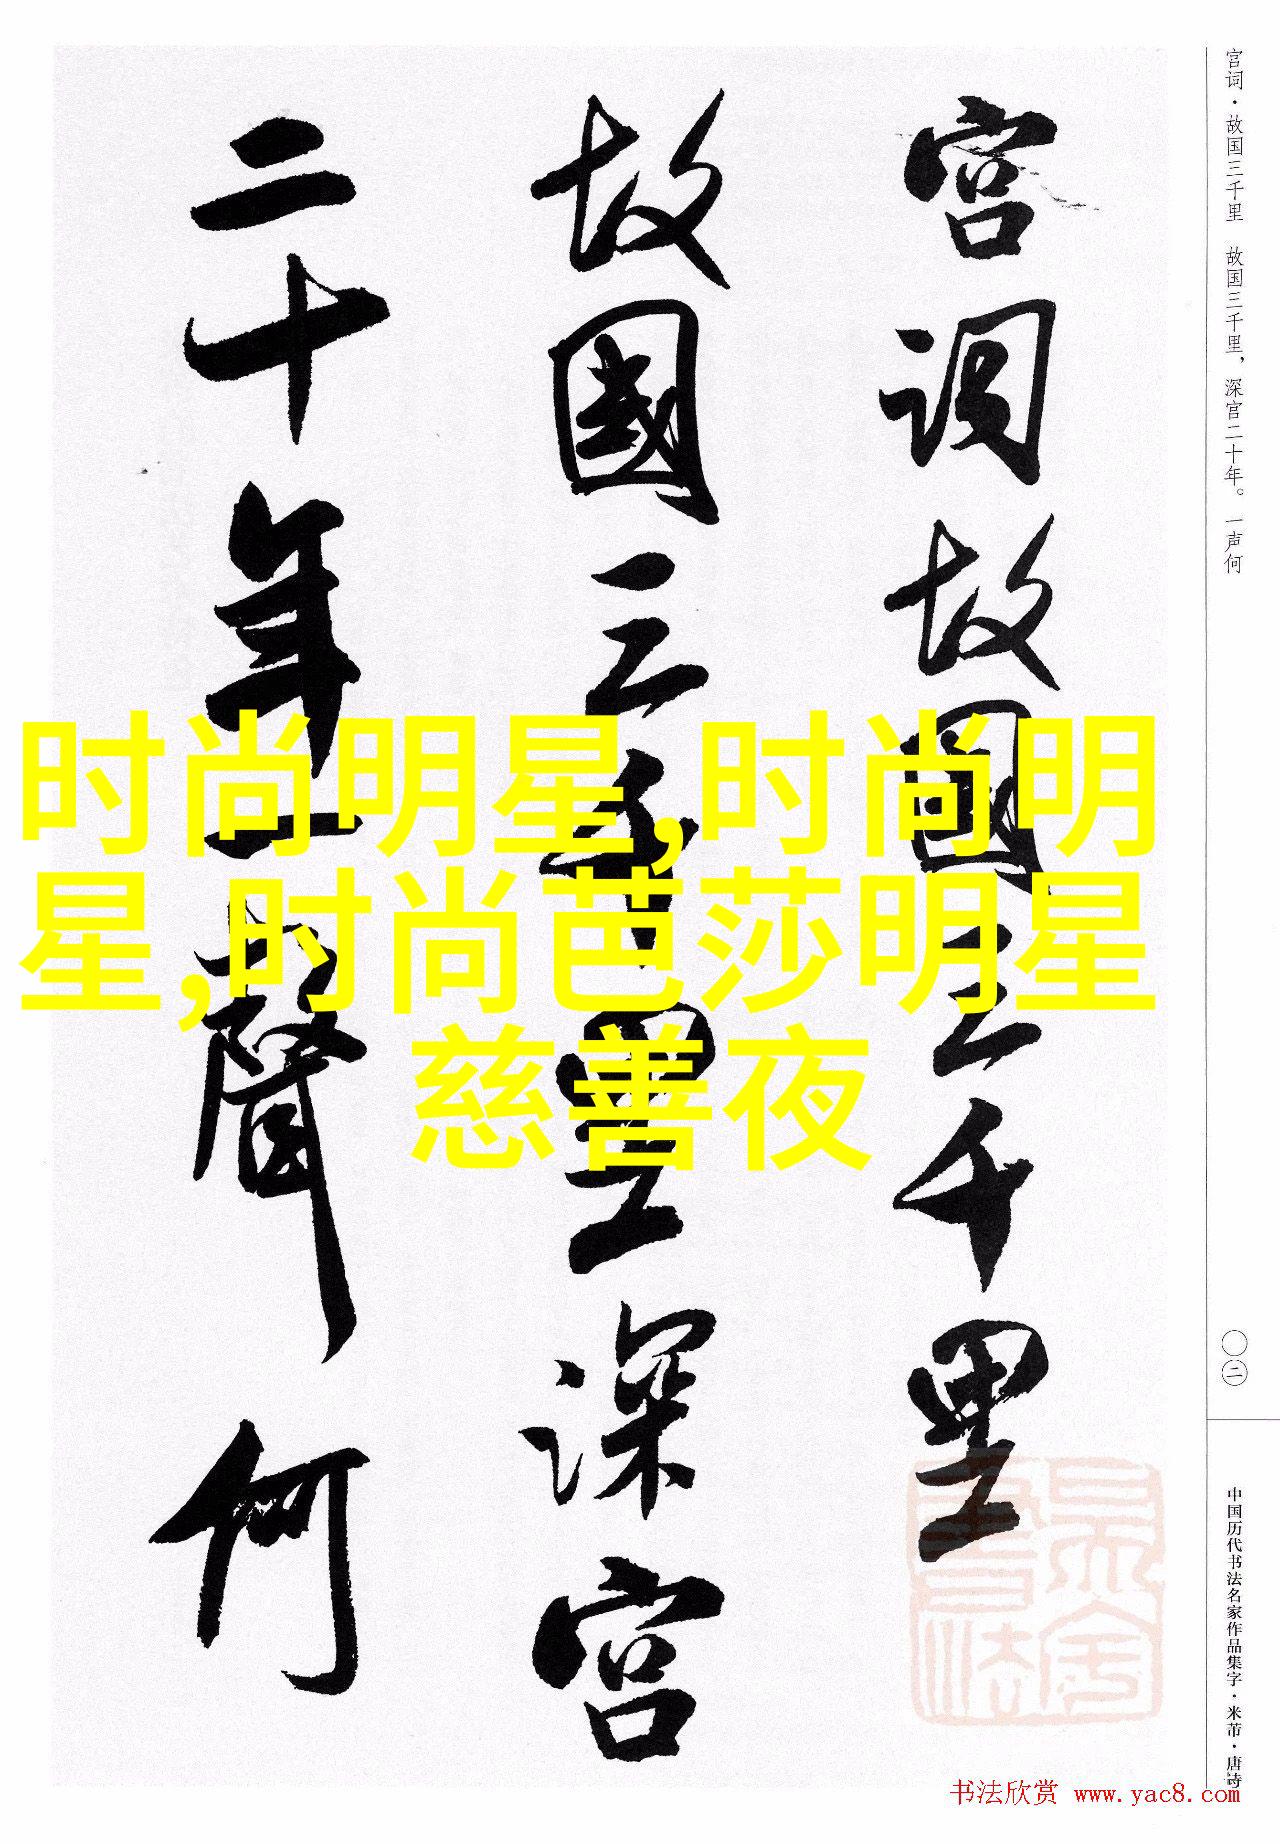 宫词·故国三千里　故国三千里，深宫二十年。一声何
宫词故國三千里
故國三千里深宫
二十年一聲何
时尚明星,时尚明
星,时尚芭莎明星
慈善夜
〇二
中国历代书法名家作品集字·米芾·唐诗
书法欣赏 www.yac8.com